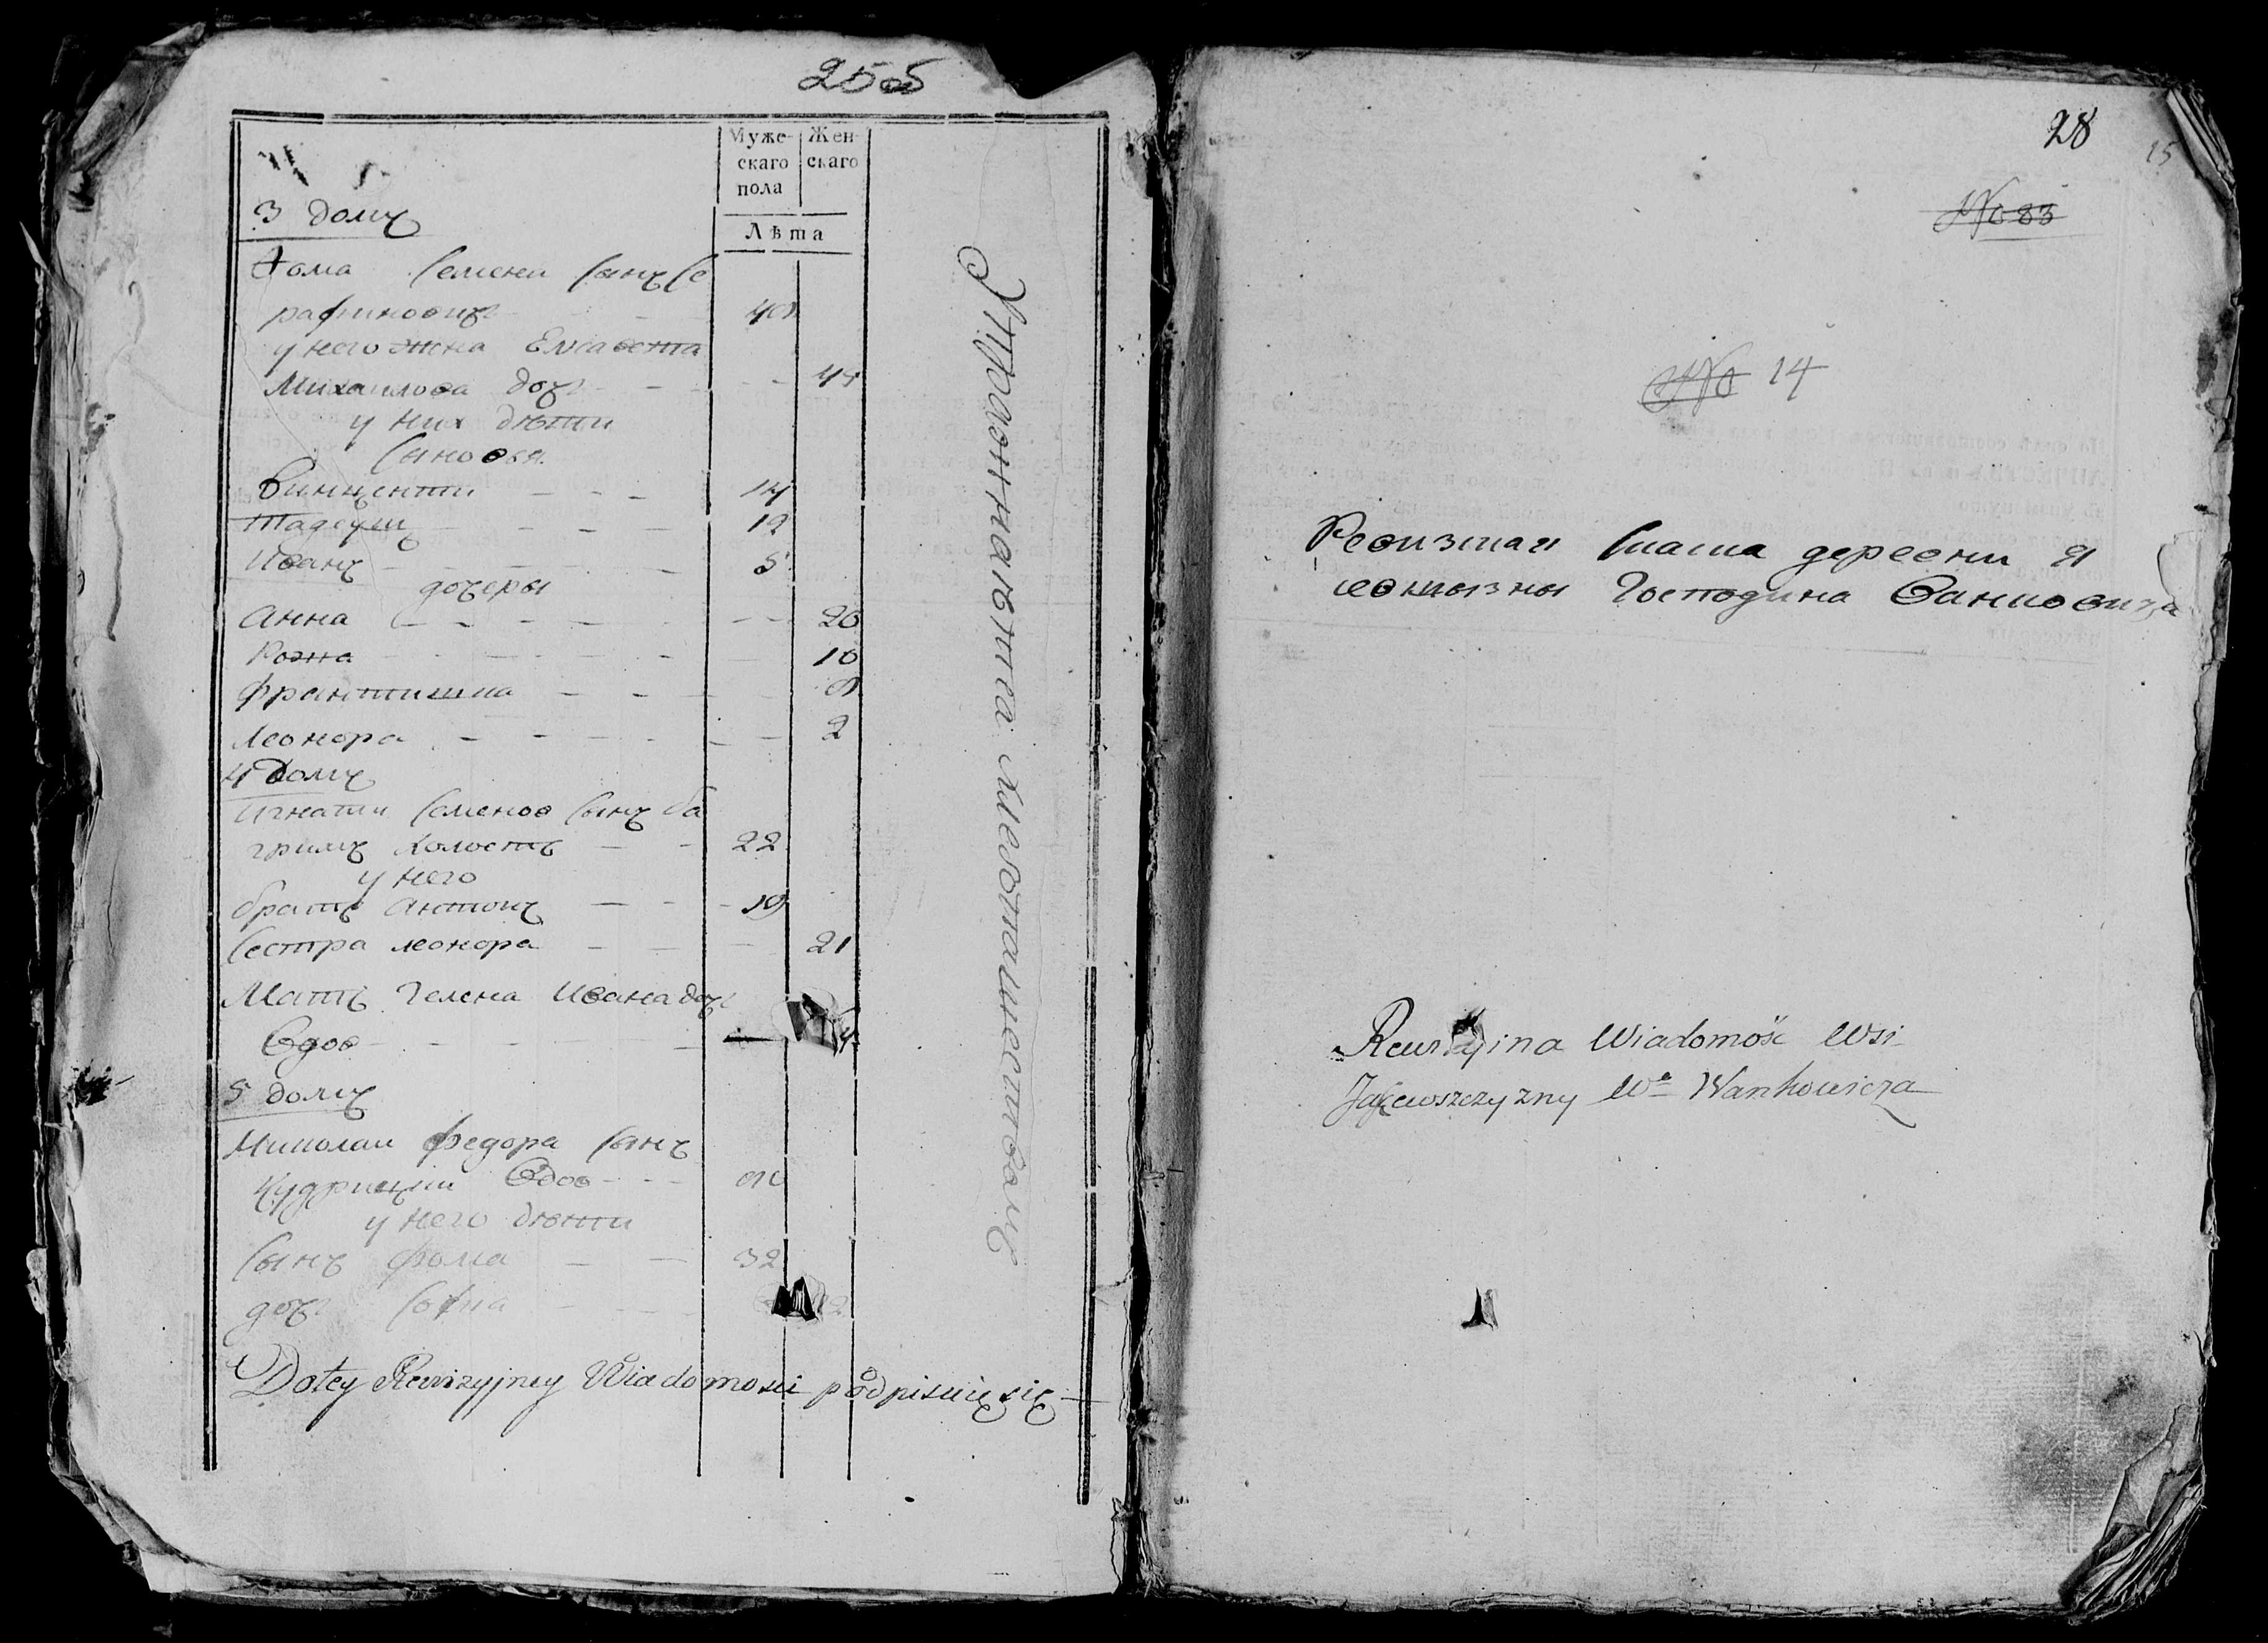 255
Муже-
скаго
пола
Жен-
скаго
Лѣта
3 домъ
Фома Семена сынъ Се
рафиновичъ - - 40
у него жена Елсавета
Михаилова дочь - - 44
у них дѣти
сыновья
Винцентии - - - 14
Тадеушъ - - - - 12
Иванъ - - - - 5
дочеры
Анна - - - - - 20
Розна - - - - - 10
Франтишка - - - 8
Леонора - - - - 2
4 домъ
Игнатии Семенов сынъ Ба
гримъ холостъ - - 22
у него
братъ Антонъ - - - 19
сестра леонора - - - 21
Мать Гелена Ивана дочь
Вдов - - - -
5 домъ
Миколаи Федора сынъ
Кудрицкии Вдов - - -
у него дѣти
сынъ Фома - - 32
дочь
Do tey Rewizyjney Wiadomosci podpisuię się
28
15
No 83
No 14
Ревизкая скаска деревни Я
Господина Ванковича
Rewizyina Wiadomość Wsi
W° Wankowicza